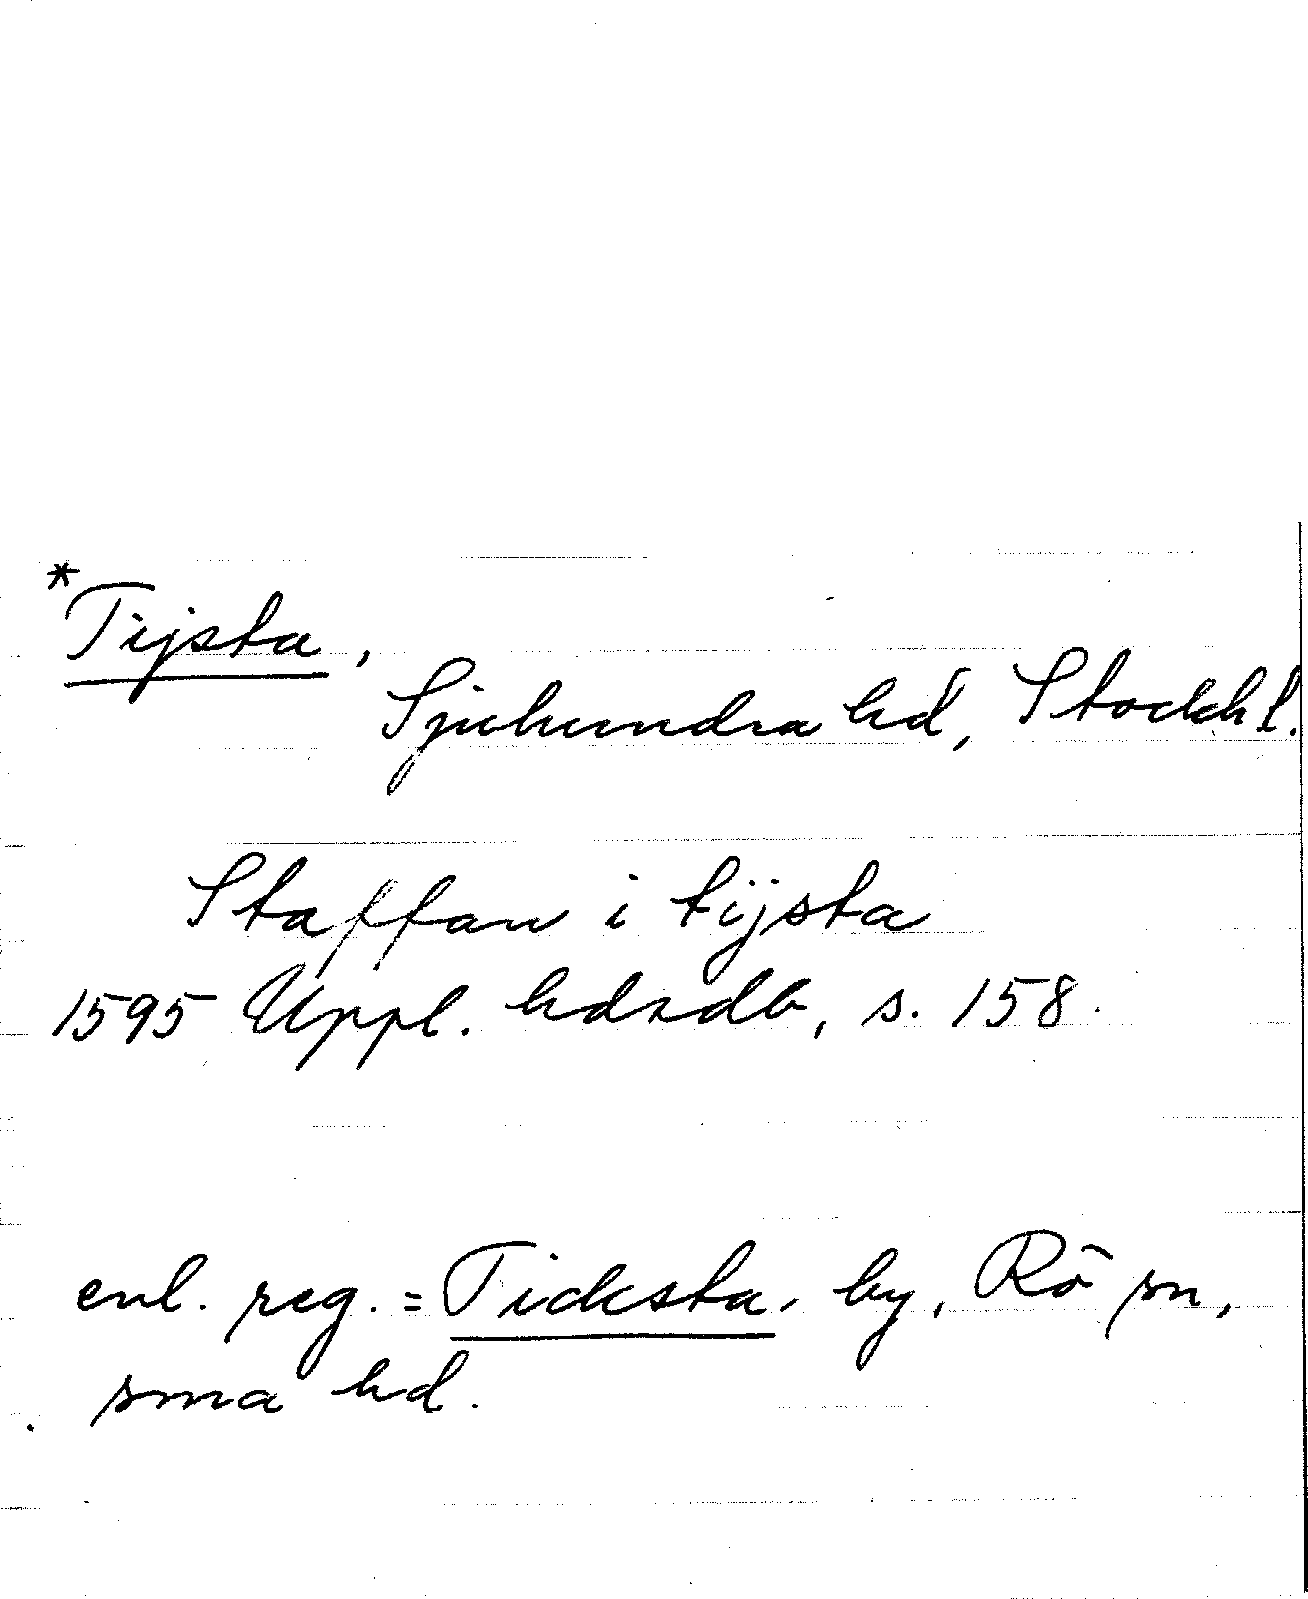 *Tijsta,
Sjuhundra hd, Stockh l.
Staffan i tïjsta
1595 Uppl. hdrdb, s. 158.
enl. reg. = Ticksta, by, Rö sn,
sma hd.